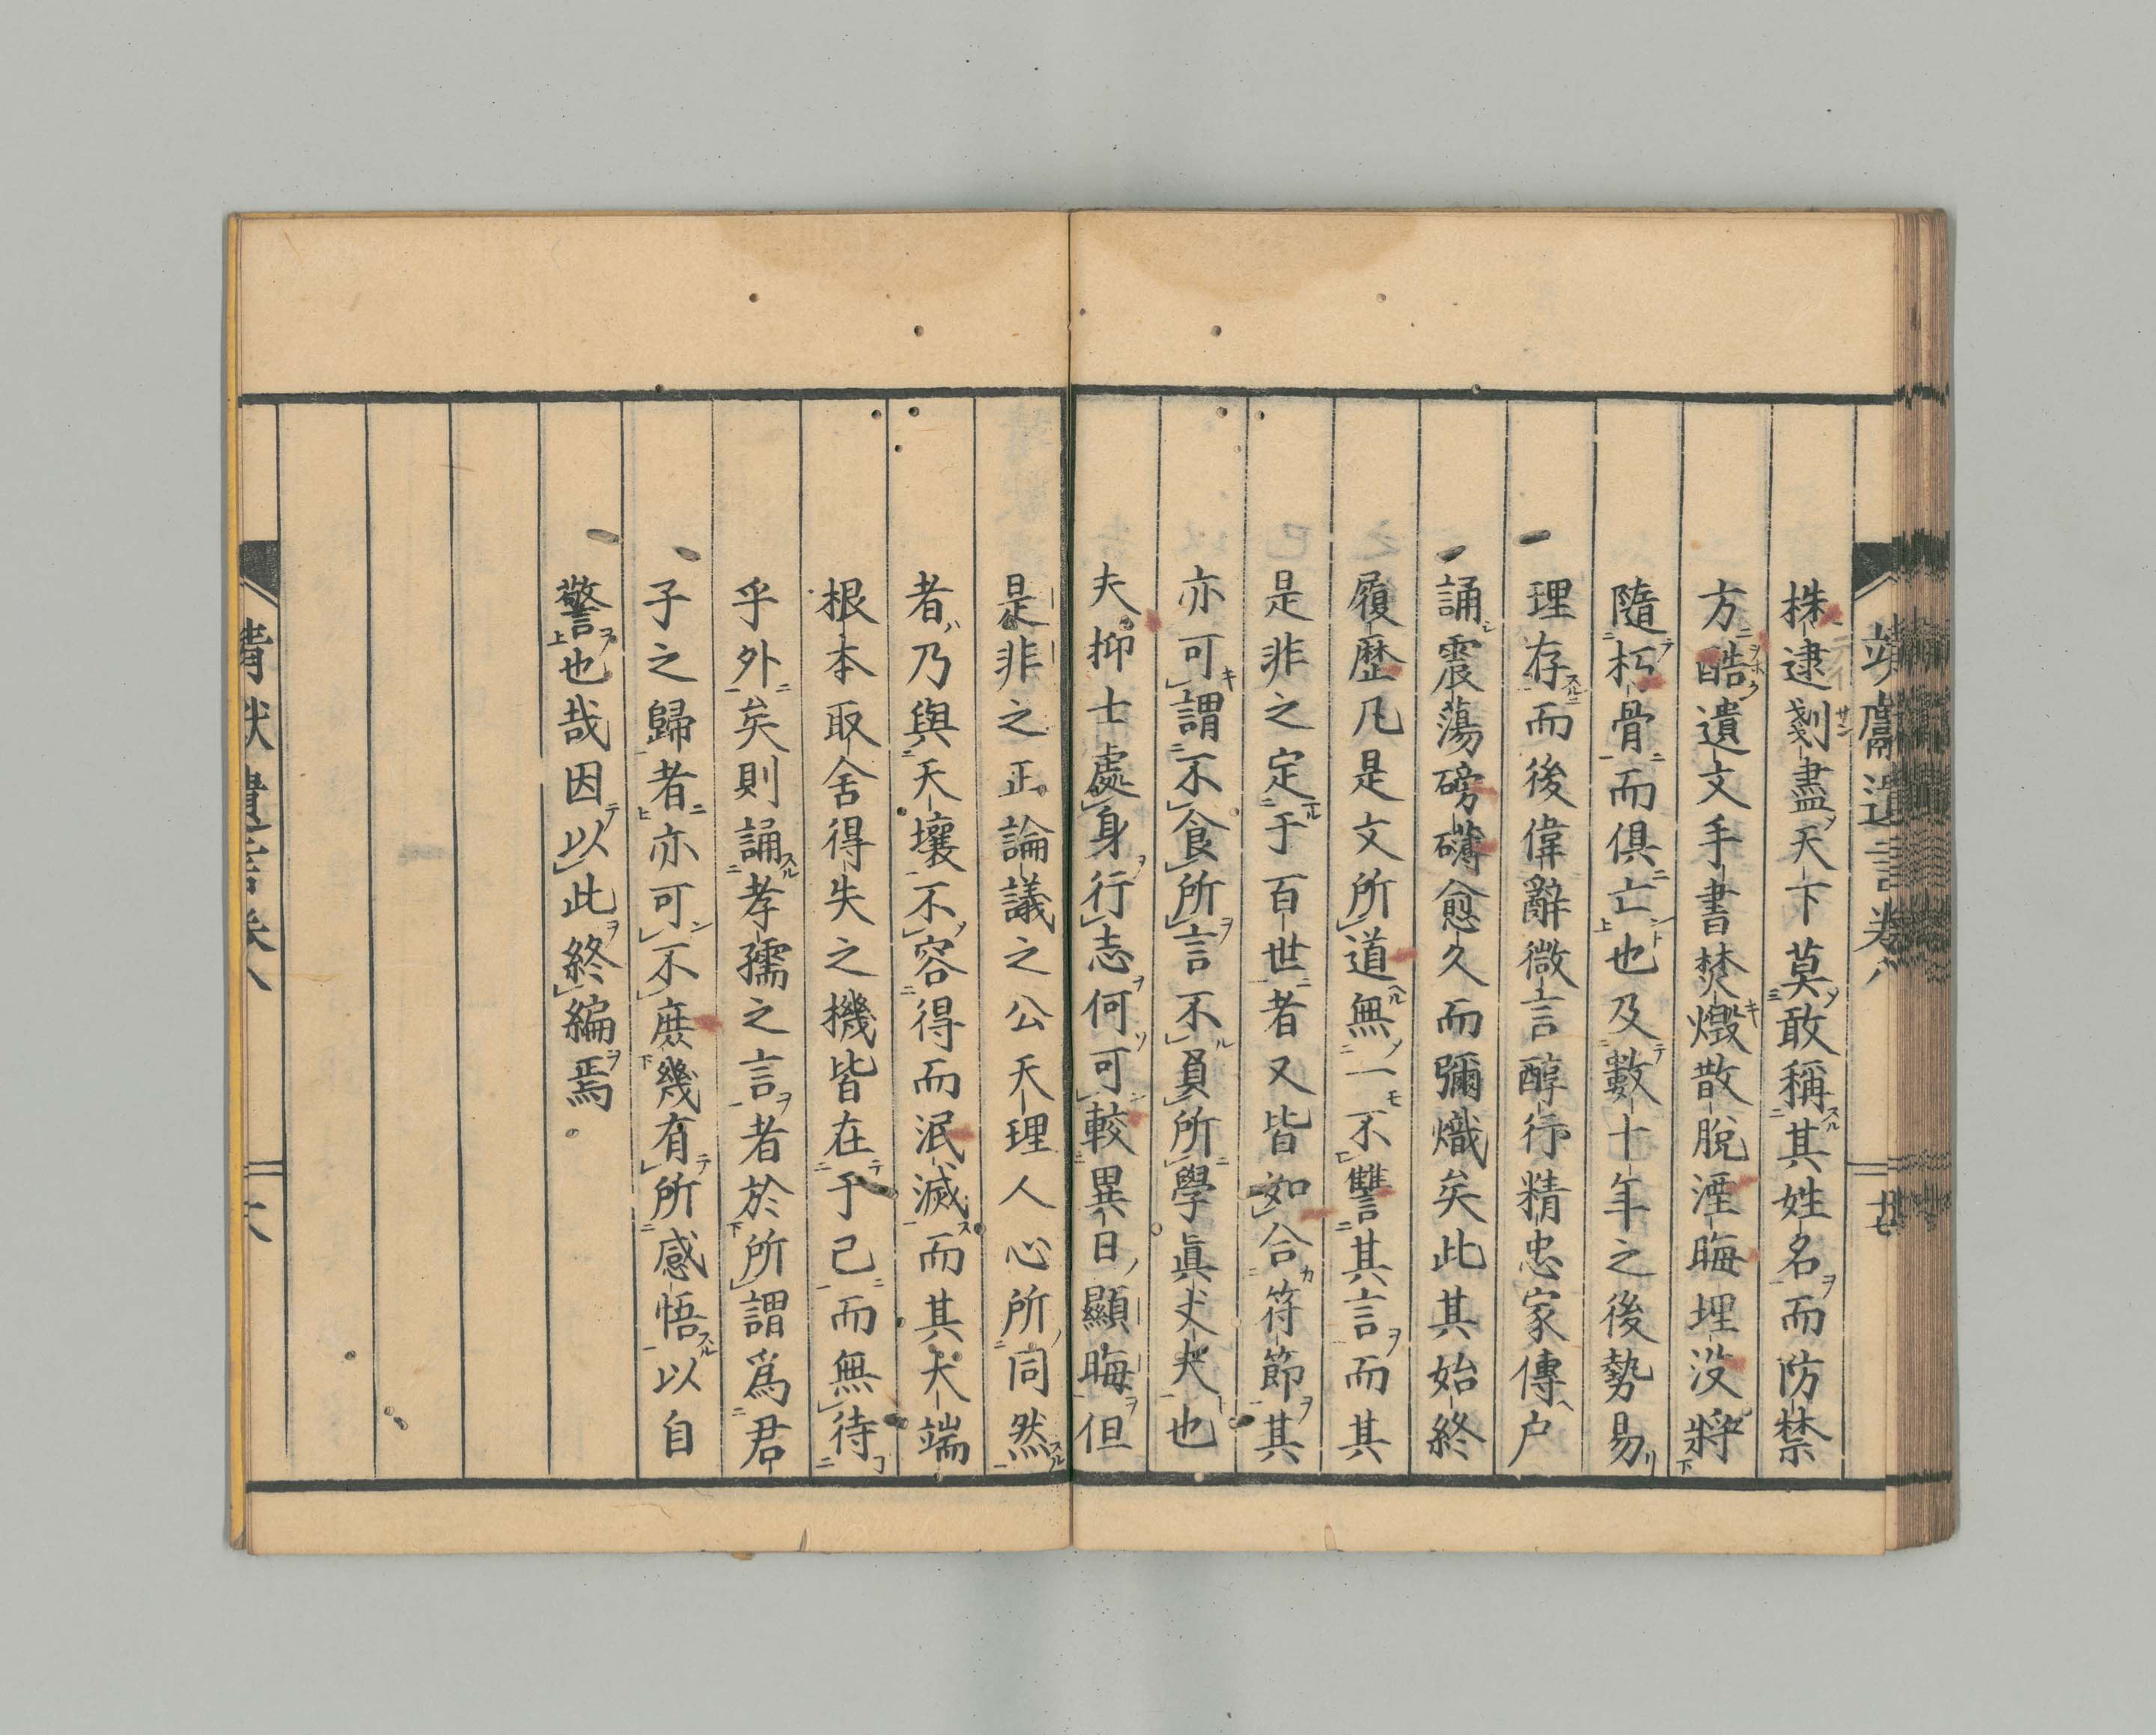 株逮剗盡天下莫敢稱其姓名而防禁
方酷遺文手書焚燬散脫湮晦埋没將
隨朽骨而俱亡也及數十年之後勢易
理存而後偉辭微言醇行精忠家傳户
誦震蕩磅礴愈久而彌熾矣此其始終
履歷凡是文所道無一不讐其言而其
是非之定于百世者又皆如合符節其
亦可謂不食所言不負所學眞丈夫也
夫抑士處身行志何可較異日顯晦但
是非之正論議之公天理人心所同然
者乃與天壤不容得而泯滅而其大端
根本取舍得失之機皆在于己而無待
乎外矣則誦孝孺之言者於所謂爲君
子之歸者亦可不庶幾有所感悟以自
警也哉因以此終編焉